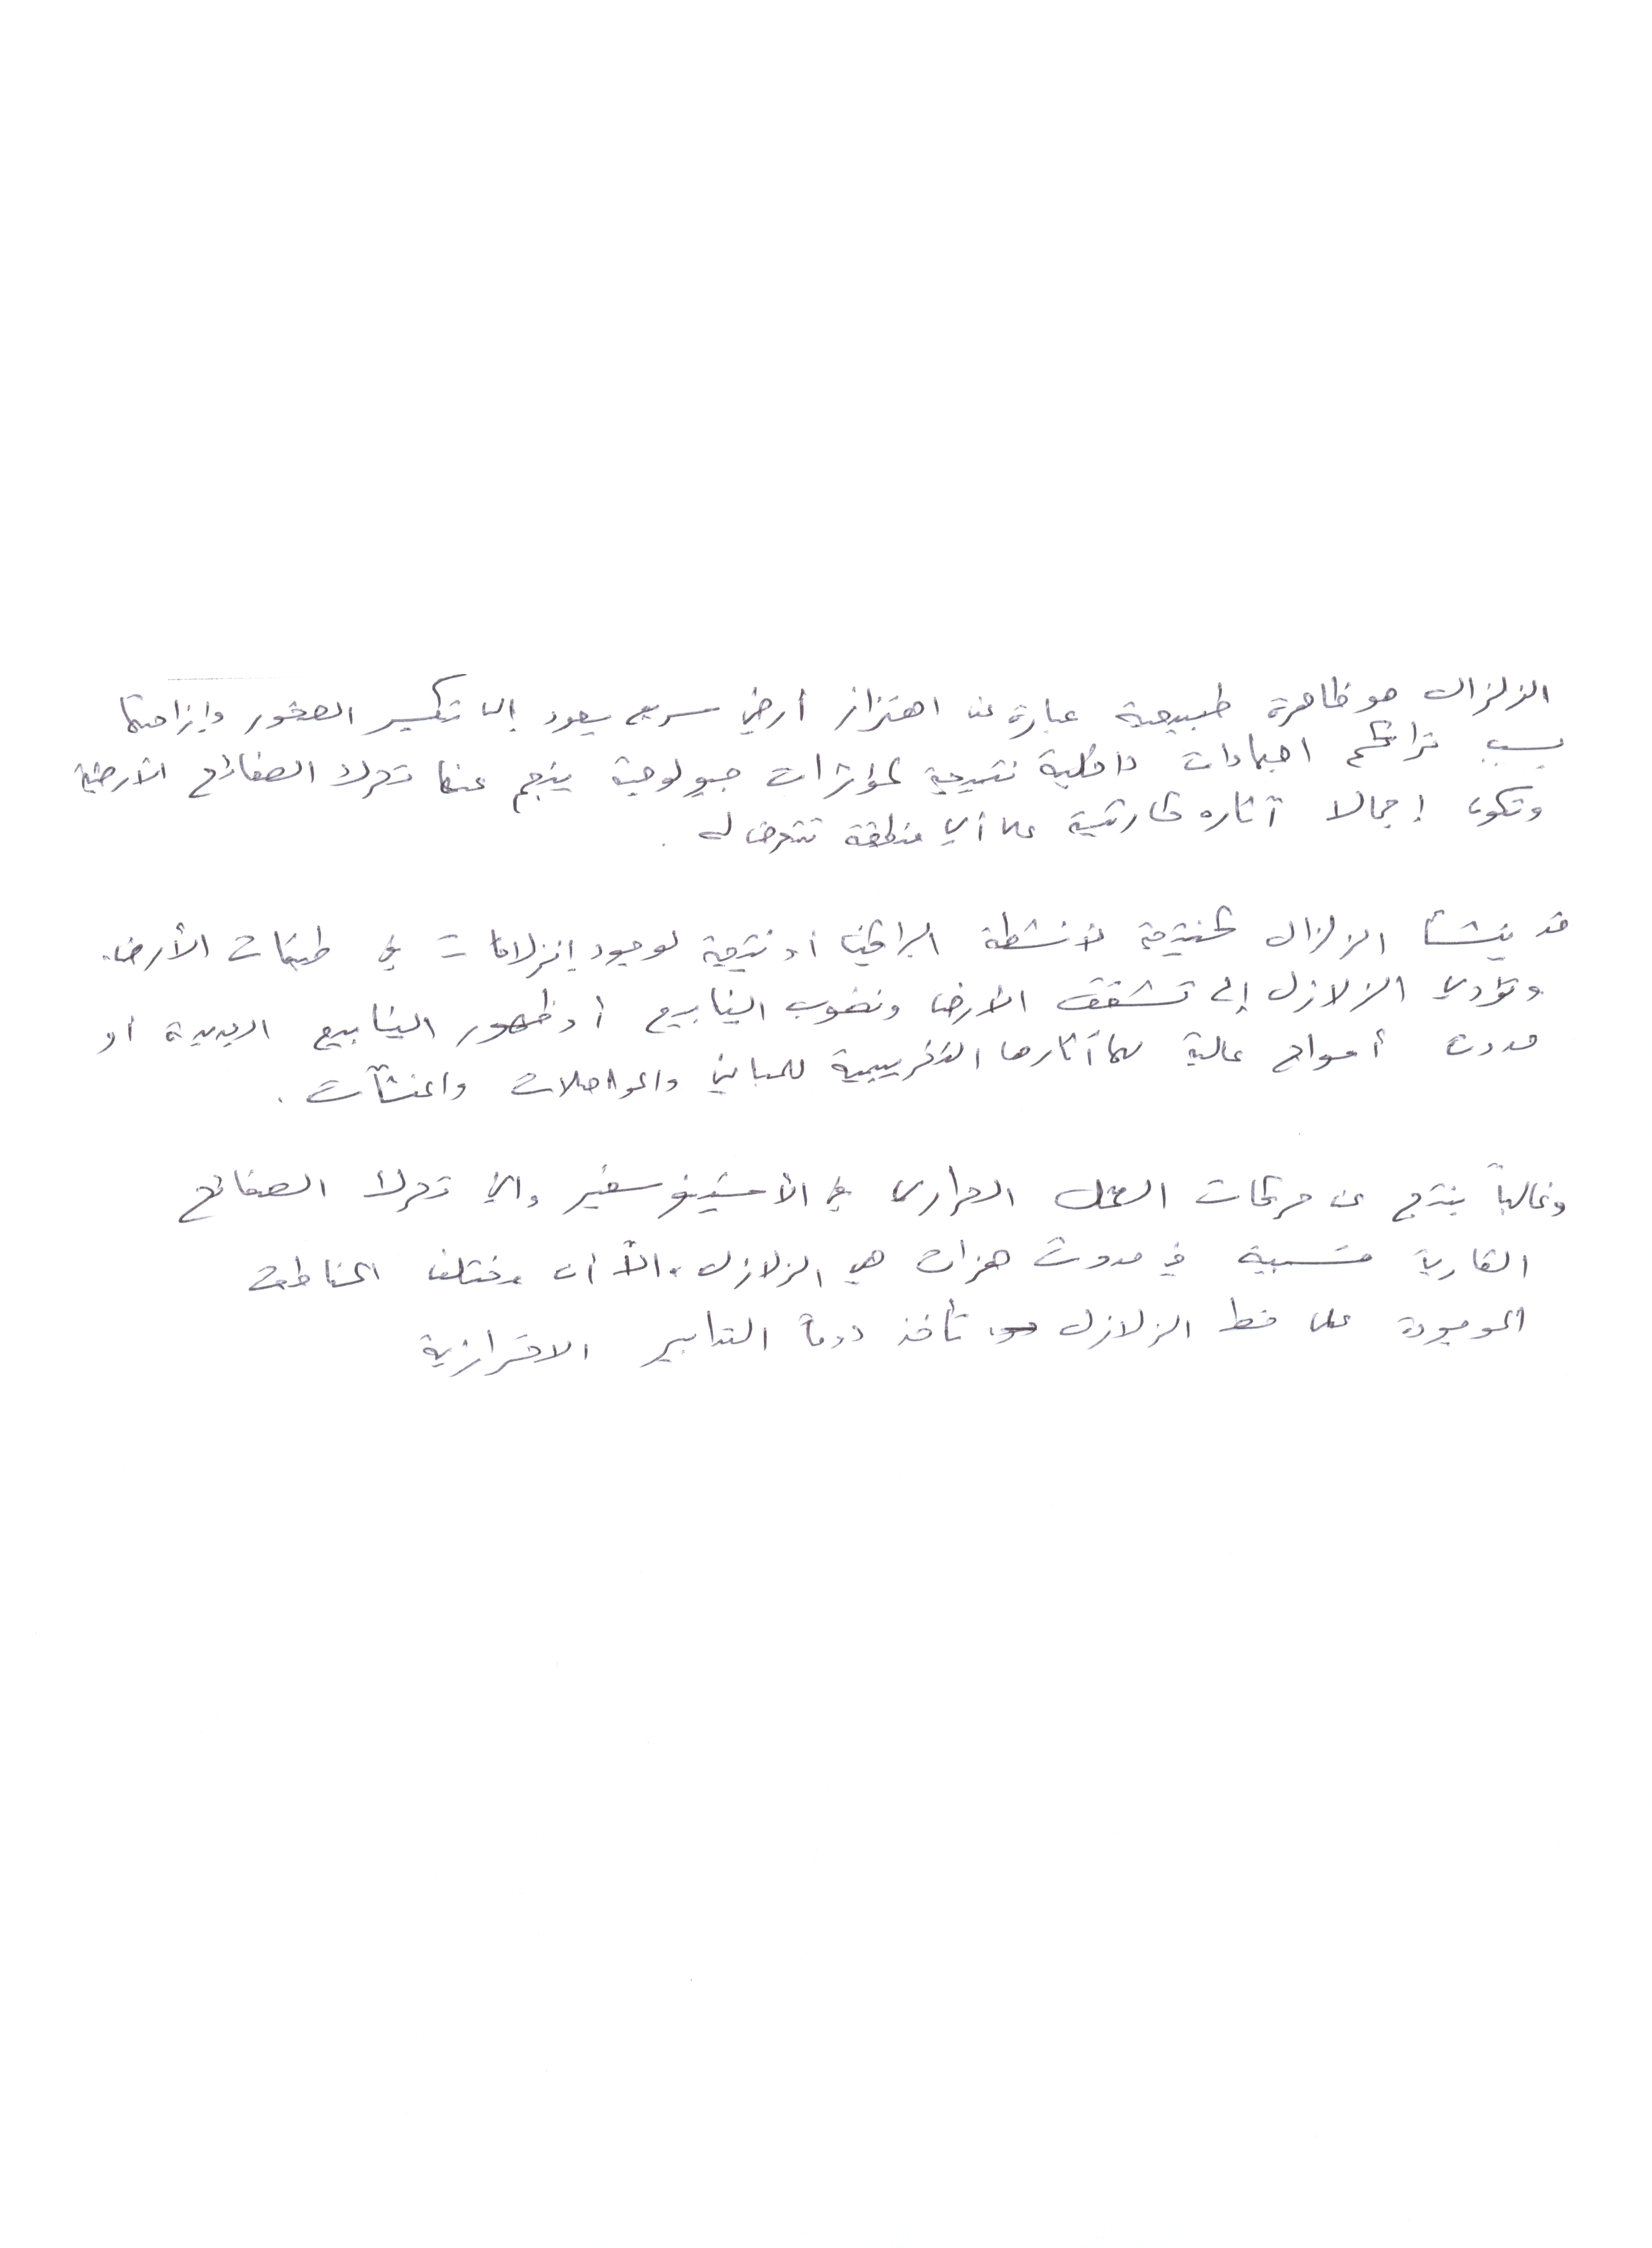 الزلزال هو ظاهرة طبيعية عبارة عن اهتزاز أرضي سريع يعود إلى تكسير الصخور وإزاحتها
بسبب تراكم اجهادات داخلية نتيجة لمؤثرات جيولوجية ينجم عنها تحرك الصفائح الأرضية
وتكون إجمالا آثاره كارثية على أي منطقة تتعرض له .
قد ينشأ الزلزال كنتيجة لأنشطة البراكين أو نتيجة لوجود إنزلاقات في طبقات الأرض.
وتؤدي الزلازل إلى تشقق الأرض ونضوب الينابيع أو ظهور الينابيع الجديدة أو
حدوث أمواج عالية كما آثارها التخريبية للمباني والمواصلات والمنشآت .
وغالباً ينتج عن حركات الحمل الحراري في الأستينوسفير والتي تحرك الصفائح
القارية مسببة في حدوث هزات هي الزلازل. الأ أن مختلف المناطق
الموجودة على خط الزلازل تأخذ دوماً التدابير الاحترازية